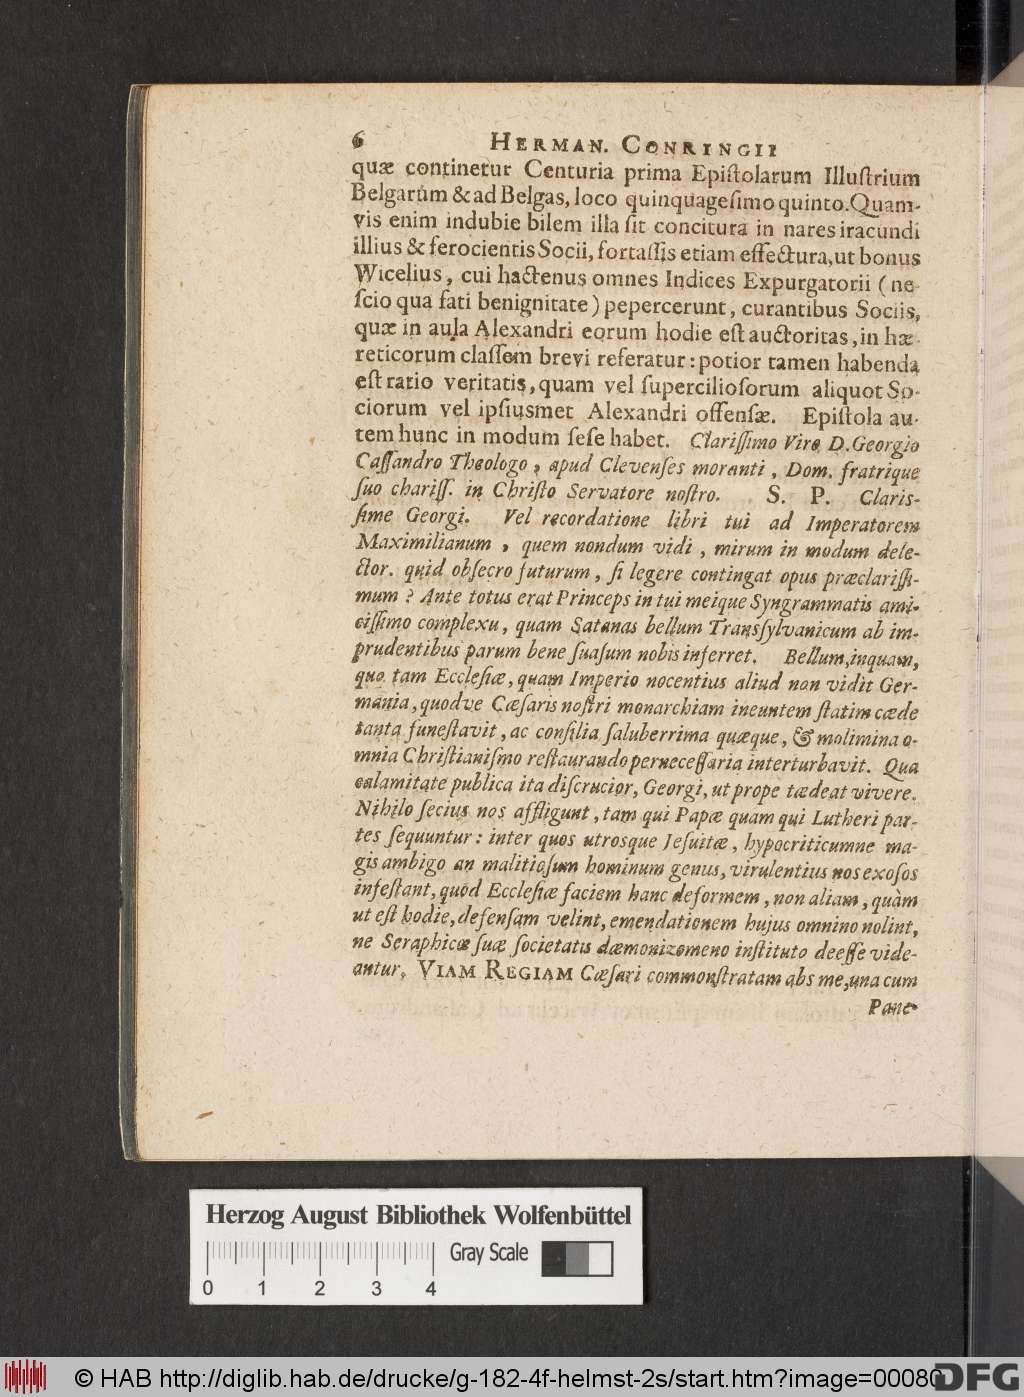 6 HERMAN. CONRINGII
quæ continetur Centuria prima Epiſtolarum Illuſtrium
Belgarum & ad Belgas, loco quinquageſimo quinto. Quam-
vis enim indubie bilem illa ſit concitura in nares iracundi
illius & ferocientis Socii, fortaſſis etiam effectura, ut bonus
Wicelius, cui hactenus omnes Indices Expurgatorii (ne-
ſcio qua fati benignitate) pepercerunt, curantibus Sociis,
quæ in aula Alexandri eorum hodie eſt auctoritas, in hæ-
reticorum claſſem brevi referatur: potior tamen habenda
eſt ratio veritatis, quam vel ſupercilioſorum aliquot So-
ciorum vel ipſiusmet Alexandri offenſæ. Epiſtola au-
tem hunc in modum ſeſe habet. Clariſſimo Viro D. Georgio
Caſſandro Theologo, apud Clevenſes moranti, Dom. fratrique
ſuo chariſſ. in Chriſto Servatore noſtro. S. P. Claris-
ſime Georgi. Vel recordatione libri tui ad Imperatorem
Maximilianum, quem nondum vidi, mirum in modum dele-
ctor. quid obſecro futurum, ſi legere contingat opus præclariſſi-
mum? Ante totus erat Princeps in tui meique Syngrammatis ami-
ciſſimo complexu, quam Satanas bellum Transſylvanicum ab im-
prudentibus parum bene ſuaſum nobis inferret. Bellum, inquam,
quo tam Eccleſiæ, quam Imperio nocentius aliud non vidit Ger-
mania, quodve Cæſaris noſtri monarchiam ineuntem ſtatim cæde
tanta funeſtavit, ac conſilia ſaluberrima quæque, & molimina o-
mnia Chriſtianiſmo reſtaurando perneceſſaria interturbavit. Qua
calamitate publica ita diſcrucior, Georgi, ut prope tædeat vivere.
Nihilo ſecius nos affligunt, tam qui Papæ quam qui Lutheri par-
tes ſequuntur: inter quos utrosque Jeſuitæ, hypocriticumne ma-
gis ambigo an malitioſum hominum genus, virulentius nos exoſos
infeſtant, quod Eccleſiæ faciem hanc deformem, non aliam, quàm
ut eſt hodie, defenſam velint, emendationem hujus omnino nolint,
ne Seraphicæ ſuæ ſocietatis dæmonizomeno inſtituto deeſſe vide-
antur. VIAM REGIAM Cæſari commonſtratam abs me, una cum
Pane-
Herzog August Bibliothek Wolfenbüttel
Gray Scale
0 1 2 3 4
© HAB http://diglib.hab.de/drucke/g-182-4f-helmst-2s/start.htm?image=00080
DFG